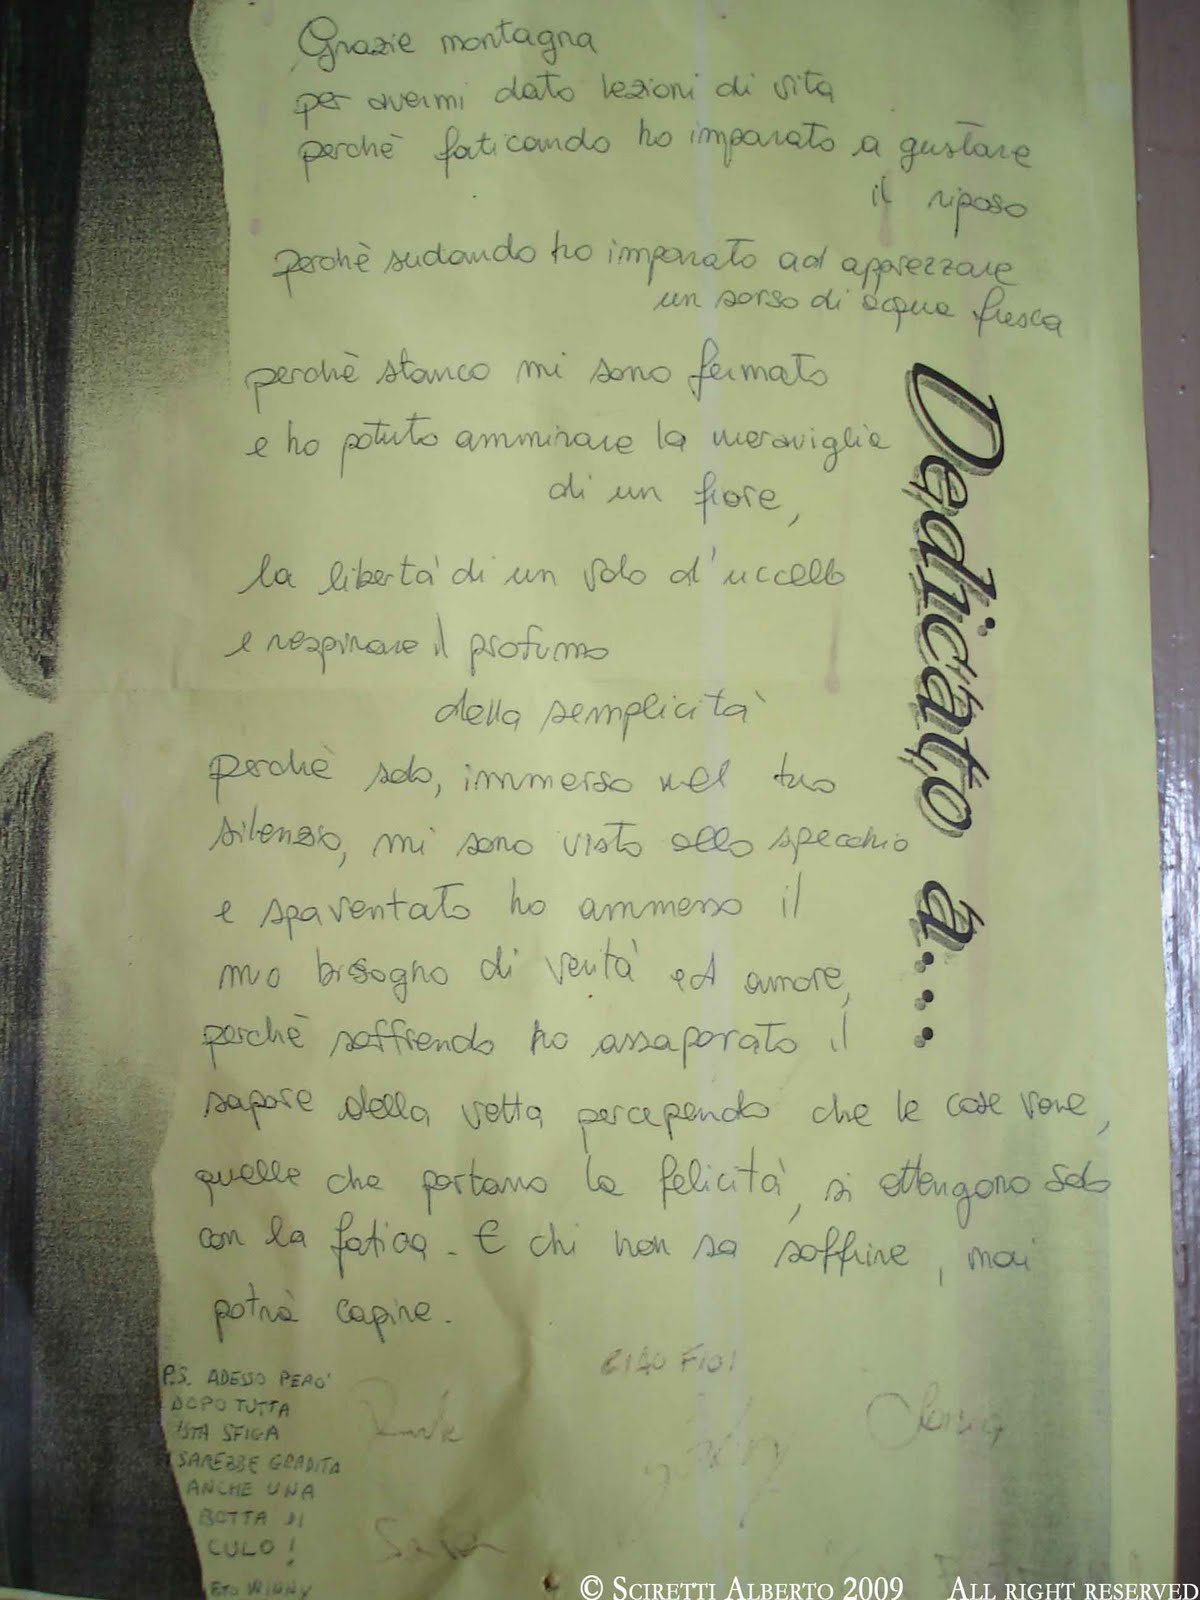 Grazie montagna
per avermi dato lezioni di vita
perchè faticando ho imparato a gustare
il riposo
perchè sudando ho imparato ad apprezzare
un sorso di acqua fresca
perchè stanco mi sono fermato
e ho potuto ammirare la meraviglia
di un fiore,
la libertà di un volo d'uccello
e respirare il profumo
della semplicità
perchè solo, immerso nel tuo
silenzio, mi sono visto allo specchio
e spaventato ho ammesso il
mio bisogno di verità ed amore,
perchè soffrendo ho assaporato il
sapore della vetta percependo che le cose vere,
quelle che portano la felicità, si ottengono solo
con la fatica. E chi non sa soffrire, mai
potrà capire.
Dedicato a...
CIAO FIOI
P.S. ADESSO PERO'
DOPO TUTTA
'STA SFIGA
SAREBBE GRADITA
ANCHE UNA
BOTTA DI
CULO!
© Sciretti Alberto 2009 All right reserved